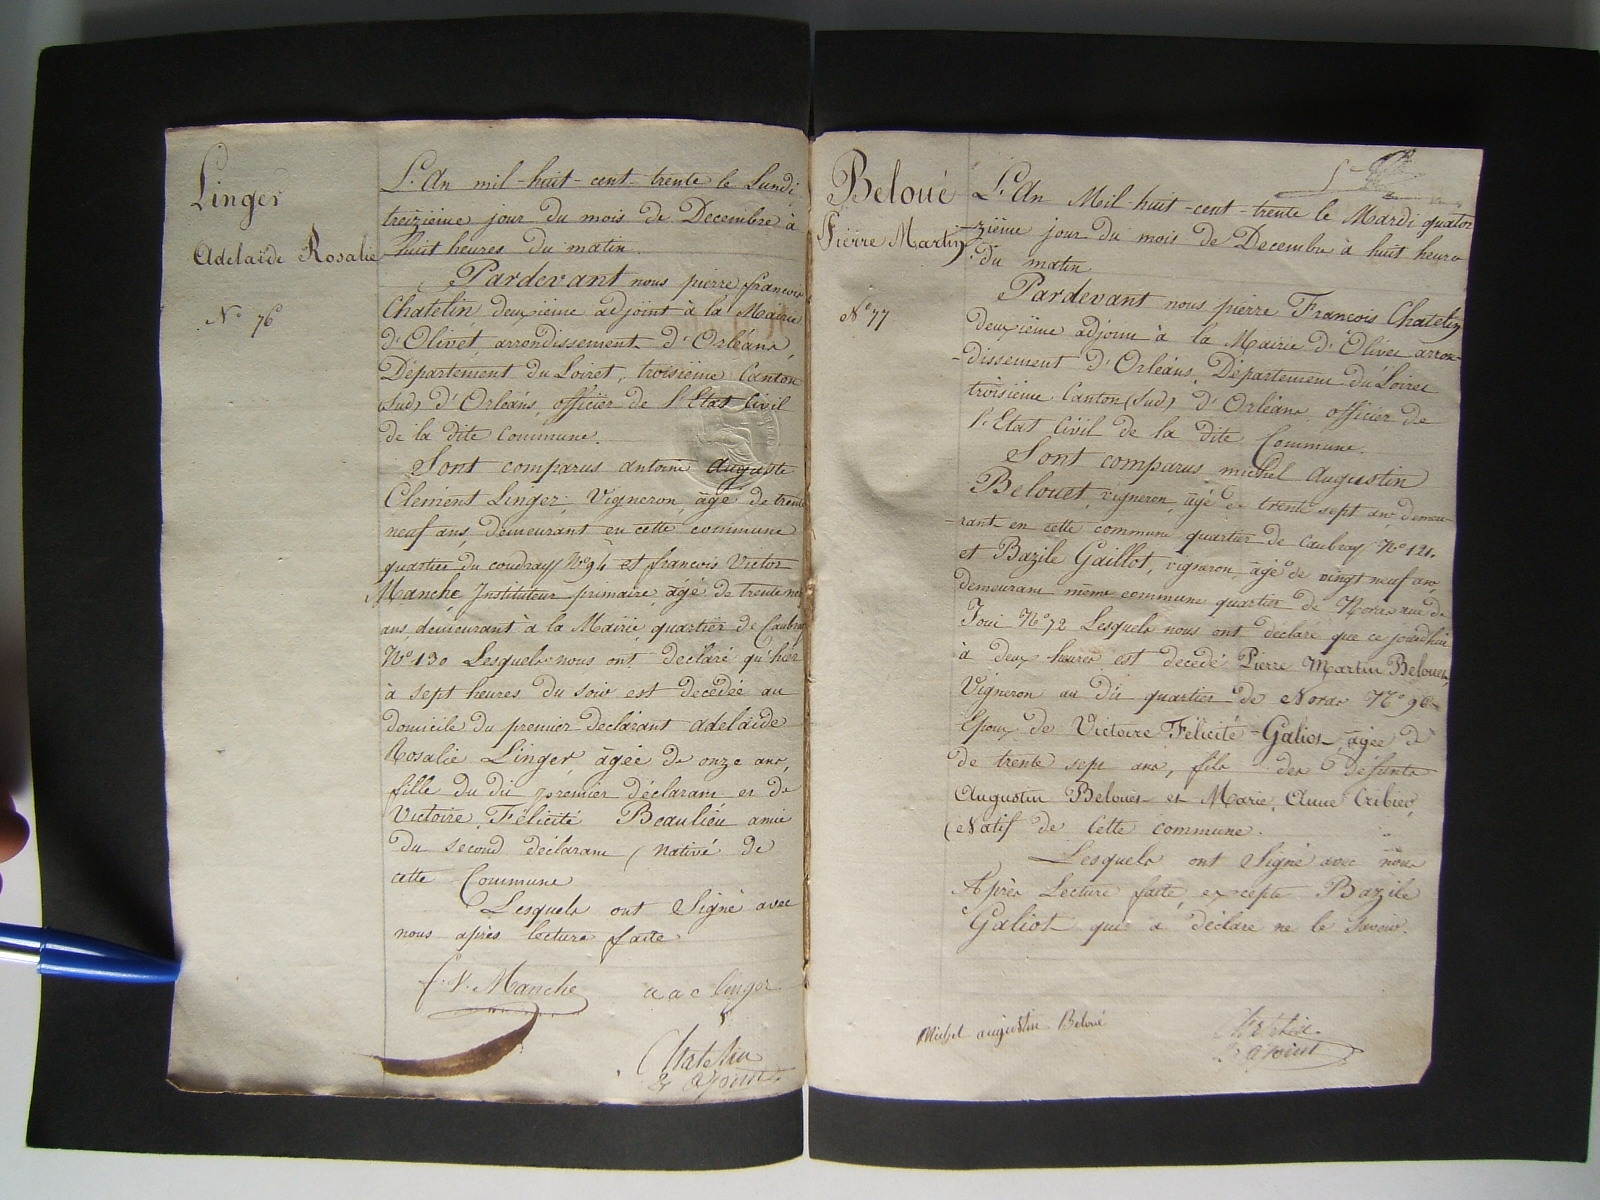 Linger
Adelaïde Rosalie
N° 76
L'An mil-huit-cent-trente le Lundi
treizième jour du mois de Decembre à
huit heures du matin.
Pardevant nous pierre françois
Chatelin deuxième adjoint à la Mairie
d'Olivet, arrondissement d'Orléans,
Département du Loiret, troisième Canton
(Sud) d'Orléans, officier de l'Etat Civil
de la dite commune.
Sont comparus antoine Auguste
Clément Linger, Vigneron, âgé de trente
neuf ans, demeurant en cette commune
quartier du coudray N° 94 et françois Victor
Manche Instituteur primaire, âgé de trente neuf
ans, demeurant à la Mairie quartier de Caubray
N° 130 Lesquels nous ont déclaré qu'hier
à sept heures du soir est décédée au
domicile du premier déclarant adelaïde
Rosalie Linger, âgée de onze ans,
fille du dit premier déclarant et de
Victoire Félicité Beaulieu amie
du second déclarant (native de
cette Commune
Lesquels ont Signé avec
nous après lecture faite.
f. V. Manche a a c linger
Chatelin
2e adjoint
Beloué
Pierre Martin
N° 77
L'An Mil-huit-cent-trente le Mardi quator
-zième jour du mois de Decembre à huit heures
du matin.
Pardevant nous pierre François Chatelin
deuxième adjoint à la Mairie d'Olivet arron-
-dissement d'Orléans, Département du Loiret
troisième Canton (Sud) d'Orléans officier de
l'Etat Civil de la dite Commune.
Sont comparus michel Augustin
Belouet, vigneron, âgé de trente sept ans demeu-
-rant en cette commune quartier de Caubray N° 121.
et Bazile Gaillot, vigneron, âgé de vingt neuf ans,
demeurant même commune quartier de Noras rue de
Joui N° 72 Lesquels nous ont déclaré que ce jourd'hui
à deux heures est décédé Pierre Martin Belouet,
Vigneron au dit quartier de Noras N° 96
Epoux de Victoire Félicité Galiot, âgée de
de trente sept ans, fils des Défunts
Augustin Belouet et Marie Anne Cribier,
(Natif de Cette commune.
Lesquels ont Signé avec nous
Après Lecture faite, excepté Bazile
Galiot qui a déclaré ne le Savoir.
Michel augustin Beloué
Chatelin
2e adjoint